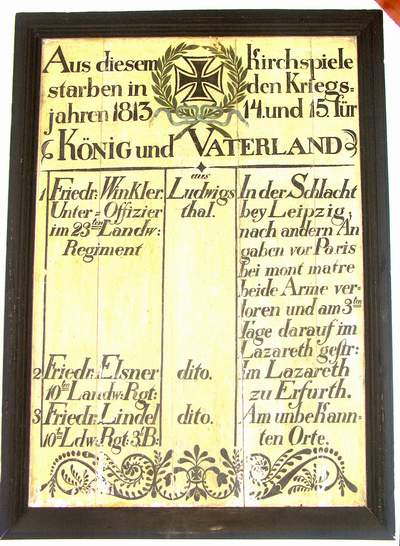 Aus diesem Kirchspiele
starben in den Kriegs=
jahren 1813. 14. und 15. für
KÖNIG und VATERLAND
aus
1 Friedr: Winkler
Unter=Offizier
im 23ten Landw:
Regiment
Ludwigs
thal.
In der Schlacht
bey Leipzig,
nach andern An
gaben vor Paris
bei mont matre
beide Arme ver-
loren und am 3ten
Tage darauf im
Lazareth gestr:
2 Friedr: Elsner
10ten Landw: Rgt:
dito.
Im Lazareth
zu Erfurth.
3 Friedr: Lindel
10t Ldw: Rgt: 3t B:
dito.
Am unbekann-
ten Orte.